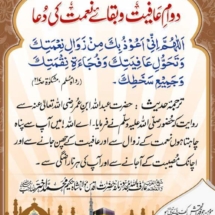 دوامِ عافیت و بقائے نعمت کی دُعا
اَللّٰهُمَّ اِنِّیْ اَعُوْذُ بِكَ مِنْ زَوَالِ نِعْمَتِكَ
وَتَحَوُّلِ عَافِيَتِكَ وَفُجَاءَةِ نِقْمَتِكَ
وَجَمِيْعِ سَخَطِكَ
ترجمہ حدیث : حضرت عبداللہ ابن عمر رضی اللہ تعالیٰ عنہ سے
روایت کہ حضور صلی اللہ علیہ وسلم نے فرمایا : اے اللہ! میں آپ سے پناہ
چاہتا ہوں نعمت کے زوال سے اور عافیت کے چھن جانے سے اور
اچانک مصیبت کے آجانے سے اور آپ کی ہر ناراضگی سے۔